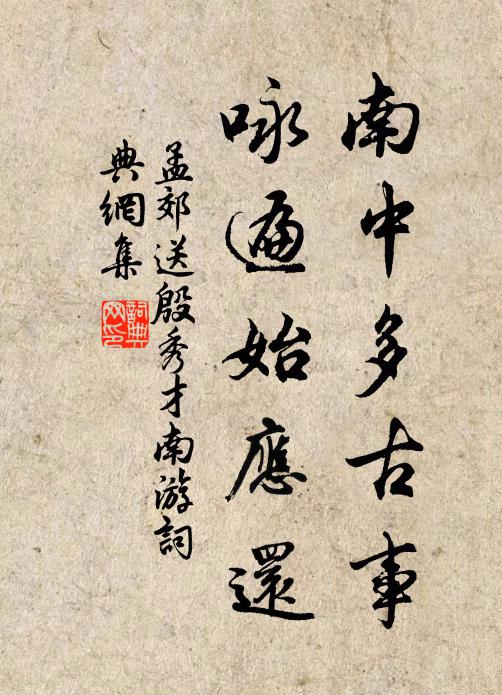 南中多古事
咏遍始應還
孟郊送殷秀才南游詞
典網集
詞典
网印